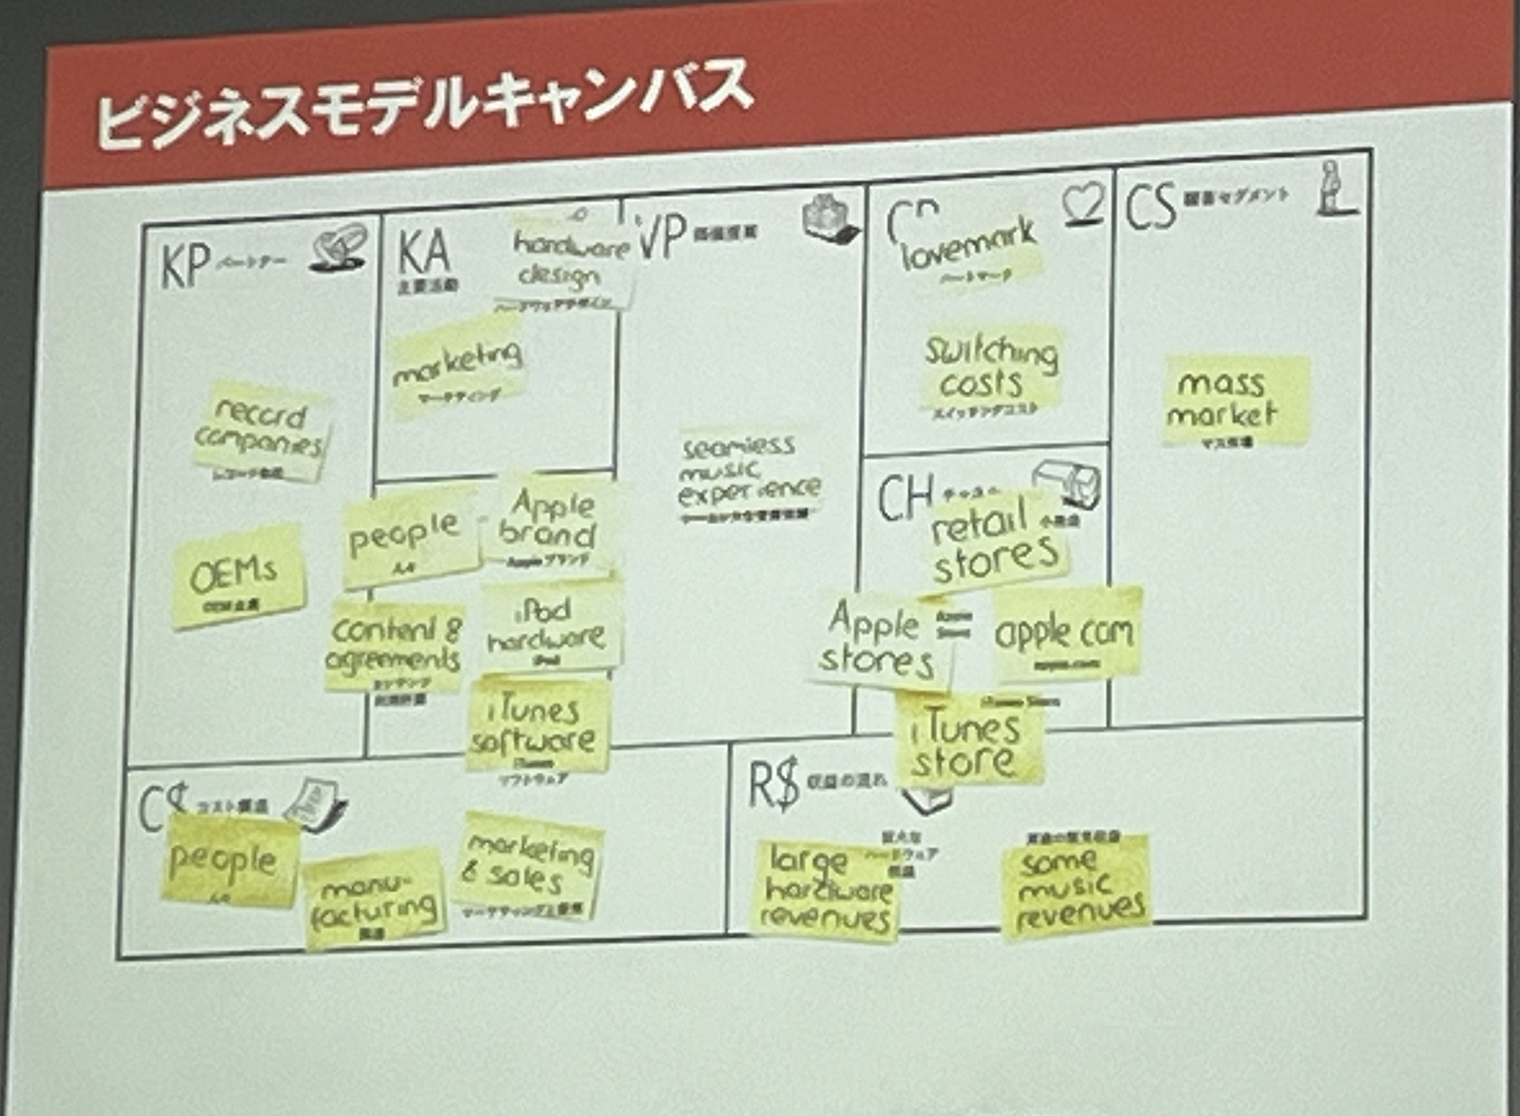 ビジネスモデルキャンバス
KP パートナー
record
companies
OEMs
OEM企業
KA
主要活動
hardware
design
ハードウェアデザイン
marketing
マーケティング
people
人々
Apple
brand
Appleブランド
content &
agreements
コンテンツ
iPod
hardware
iPod
iTunes
software
iTunes
ソフトウェア
VP 価値提案
seamless
music
experience
lovemark
switching
costs
スイッチングコスト
CH
retail
stores
小売店
Apple
stores
Apple
Store
apple com
apple.com
iTunes Store
iTunes
store
CS 顧客セグメント
mass
market
マス市場
C$ コスト構造
people
人々
manu-
facturing
製造
marketing
& sales
マーケティングと販売
R$ 収益の流れ
large
hardware
revenues
巨大な
ハードウェア
収益
some
music
revenues